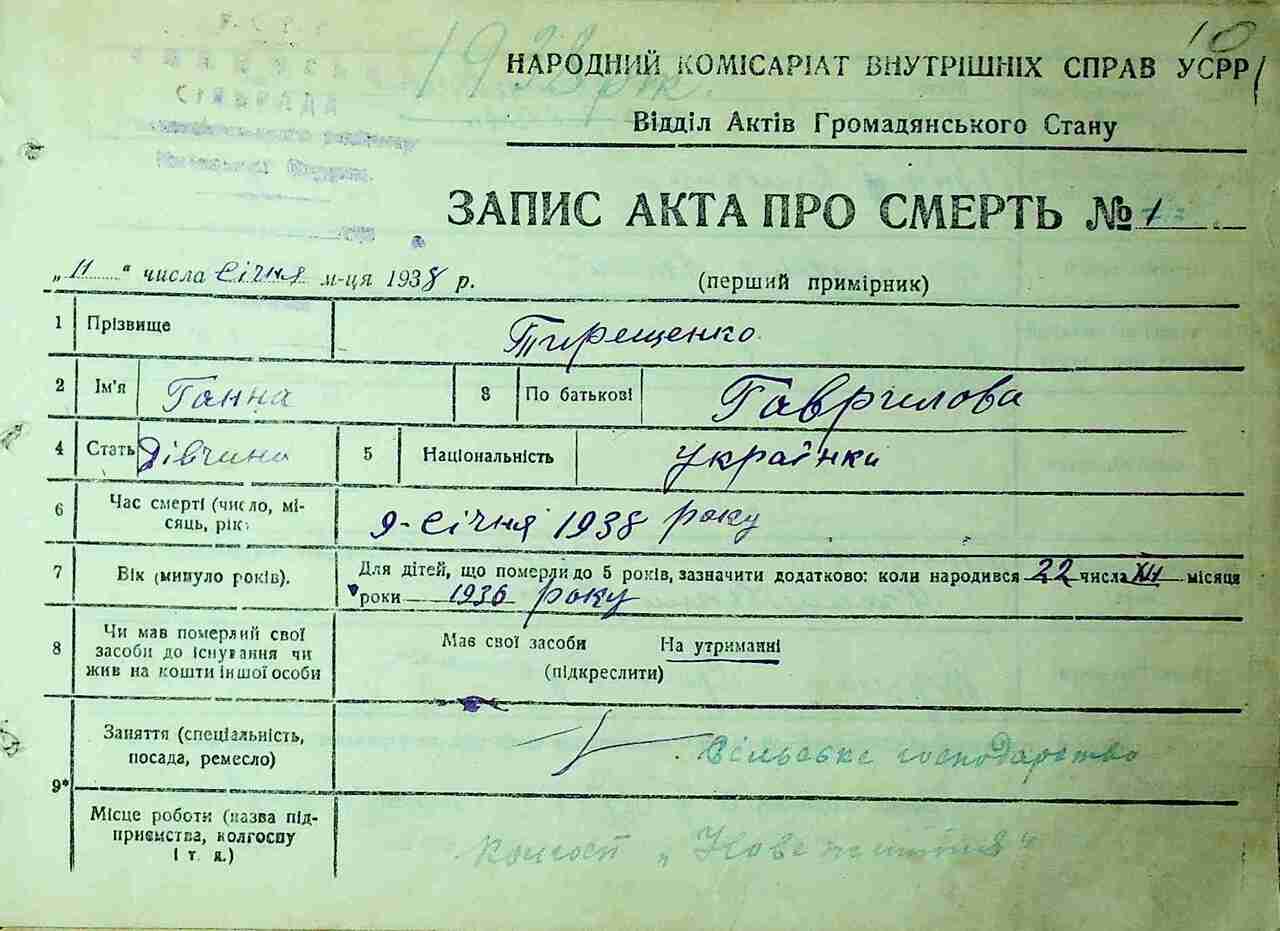 10
1938 рж.
У.С.Р.Р.
СІЛЬРАДА
НАРОДНИЙ КОМІСАРІАТ ВНУТРІШНІХ СПРАВ УСРР
Відділ Актів Громадянського Стану
ЗАПИС АКТА ПРО СМЕРТЬ № 1
„11“ числа Січня м-ця 1938 р. (перший примірник)
1 Прізвище Тирещенко
2 Ім'я Ганна 3 По батькові Гаврилова
4 Стать Дівчина 5 Національність українка
6 Час смерті (число, мі-
сяць, рік) 9-Січня 1938 року
7 Вік (минуло років). Для дітей, що померли до 5 років, зазначити додатково: коли народився 22 числа XII місяця
роки 1936 року
8 Чи мав померлий свої
засоби до існування чи
жив на кошти іншої особи
Мав свої засоби На утриманні
(підкреслити)
9* Заняття (спеціальність,
посада, ремесло)
Сільське господарство
Місце роботи (назва під-
приємства, колгоспу
і т. я.)
колгосп „Нове життя“